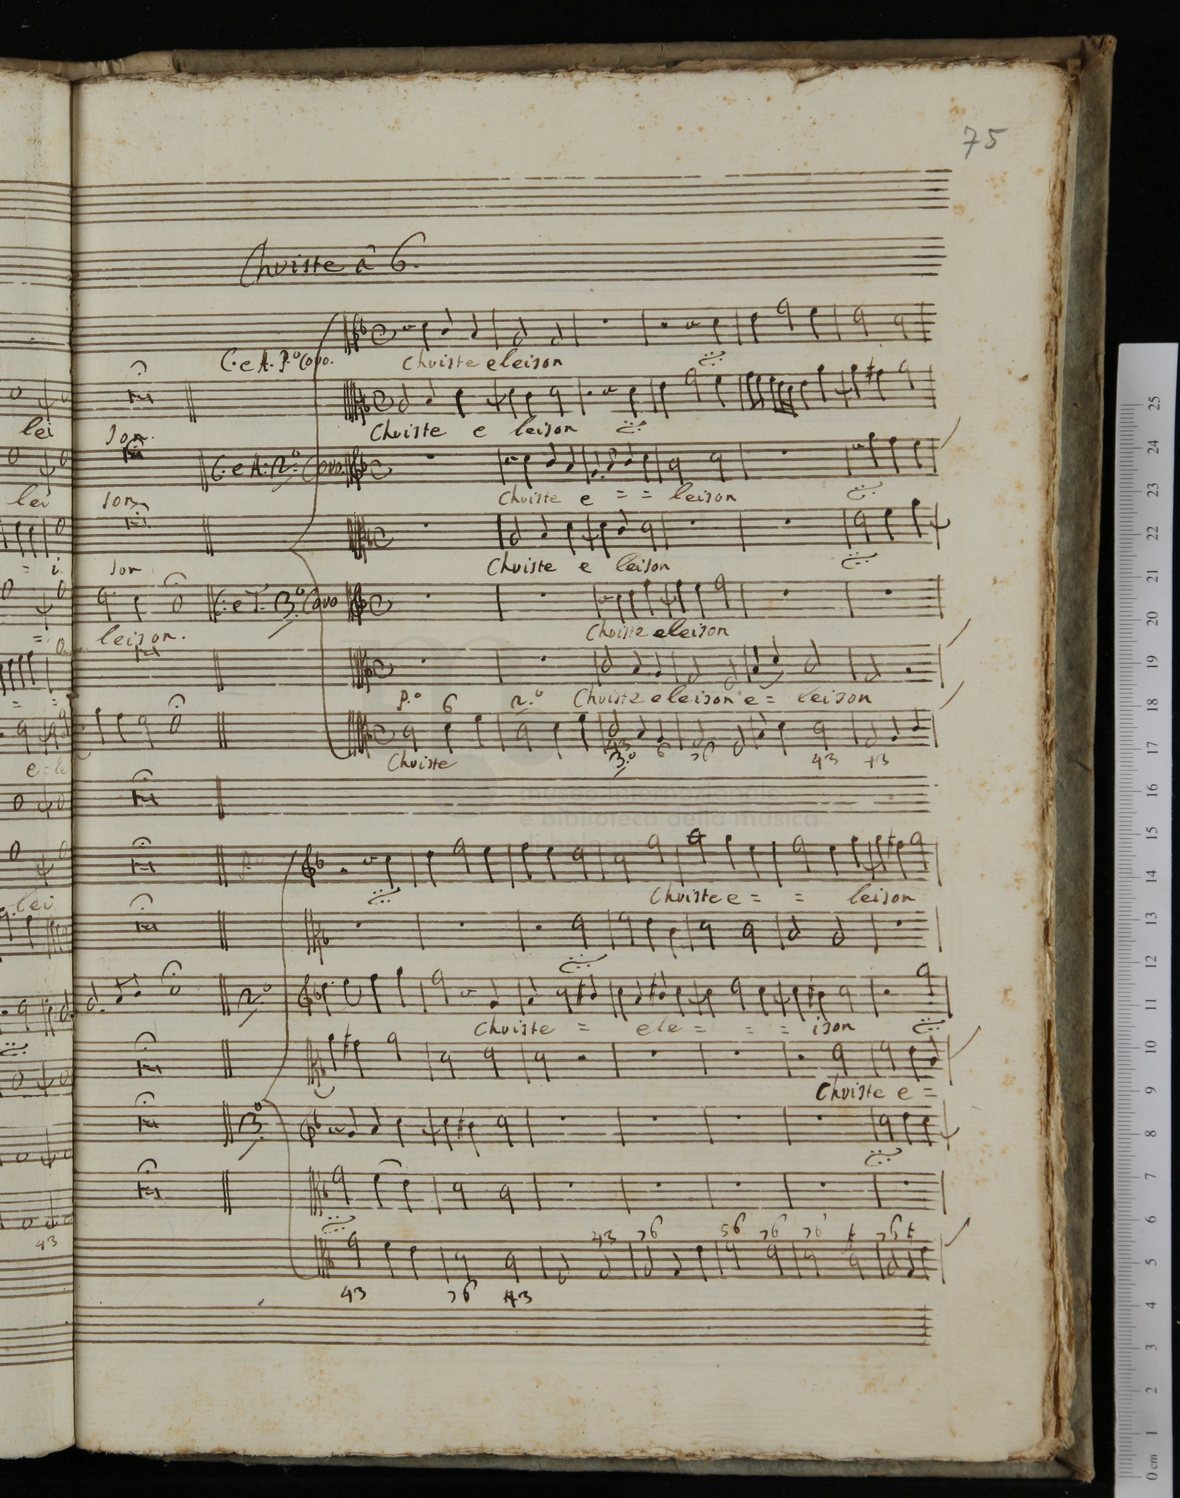 75
Christe â 6.
C. e A. P.º Coro.
Christe eleison
lei
son.
Christe e leison
C. e A. 2.º Coro
lei
son
Christe e = = leison
= i
son
Christe e leison
C. e T. 3.º Coro
= leison.
Christe eleison
P.º 6 2.º Christe eleison e = leison
43 6 76 43 43
3.º
e = le
Christe
museo internazionale
e biblioteca della musica
di bologna
lei
Christe e = = leison
2.º
Christe = ele = = = ison
Christe e =
3.º
43
43 76 56 76 76 76
43 76 43
25
24
23
22
21
20
19
18
17
16
15
14
13
12
11
10
9
8
7
6
5
4
3
2
1
0 cm